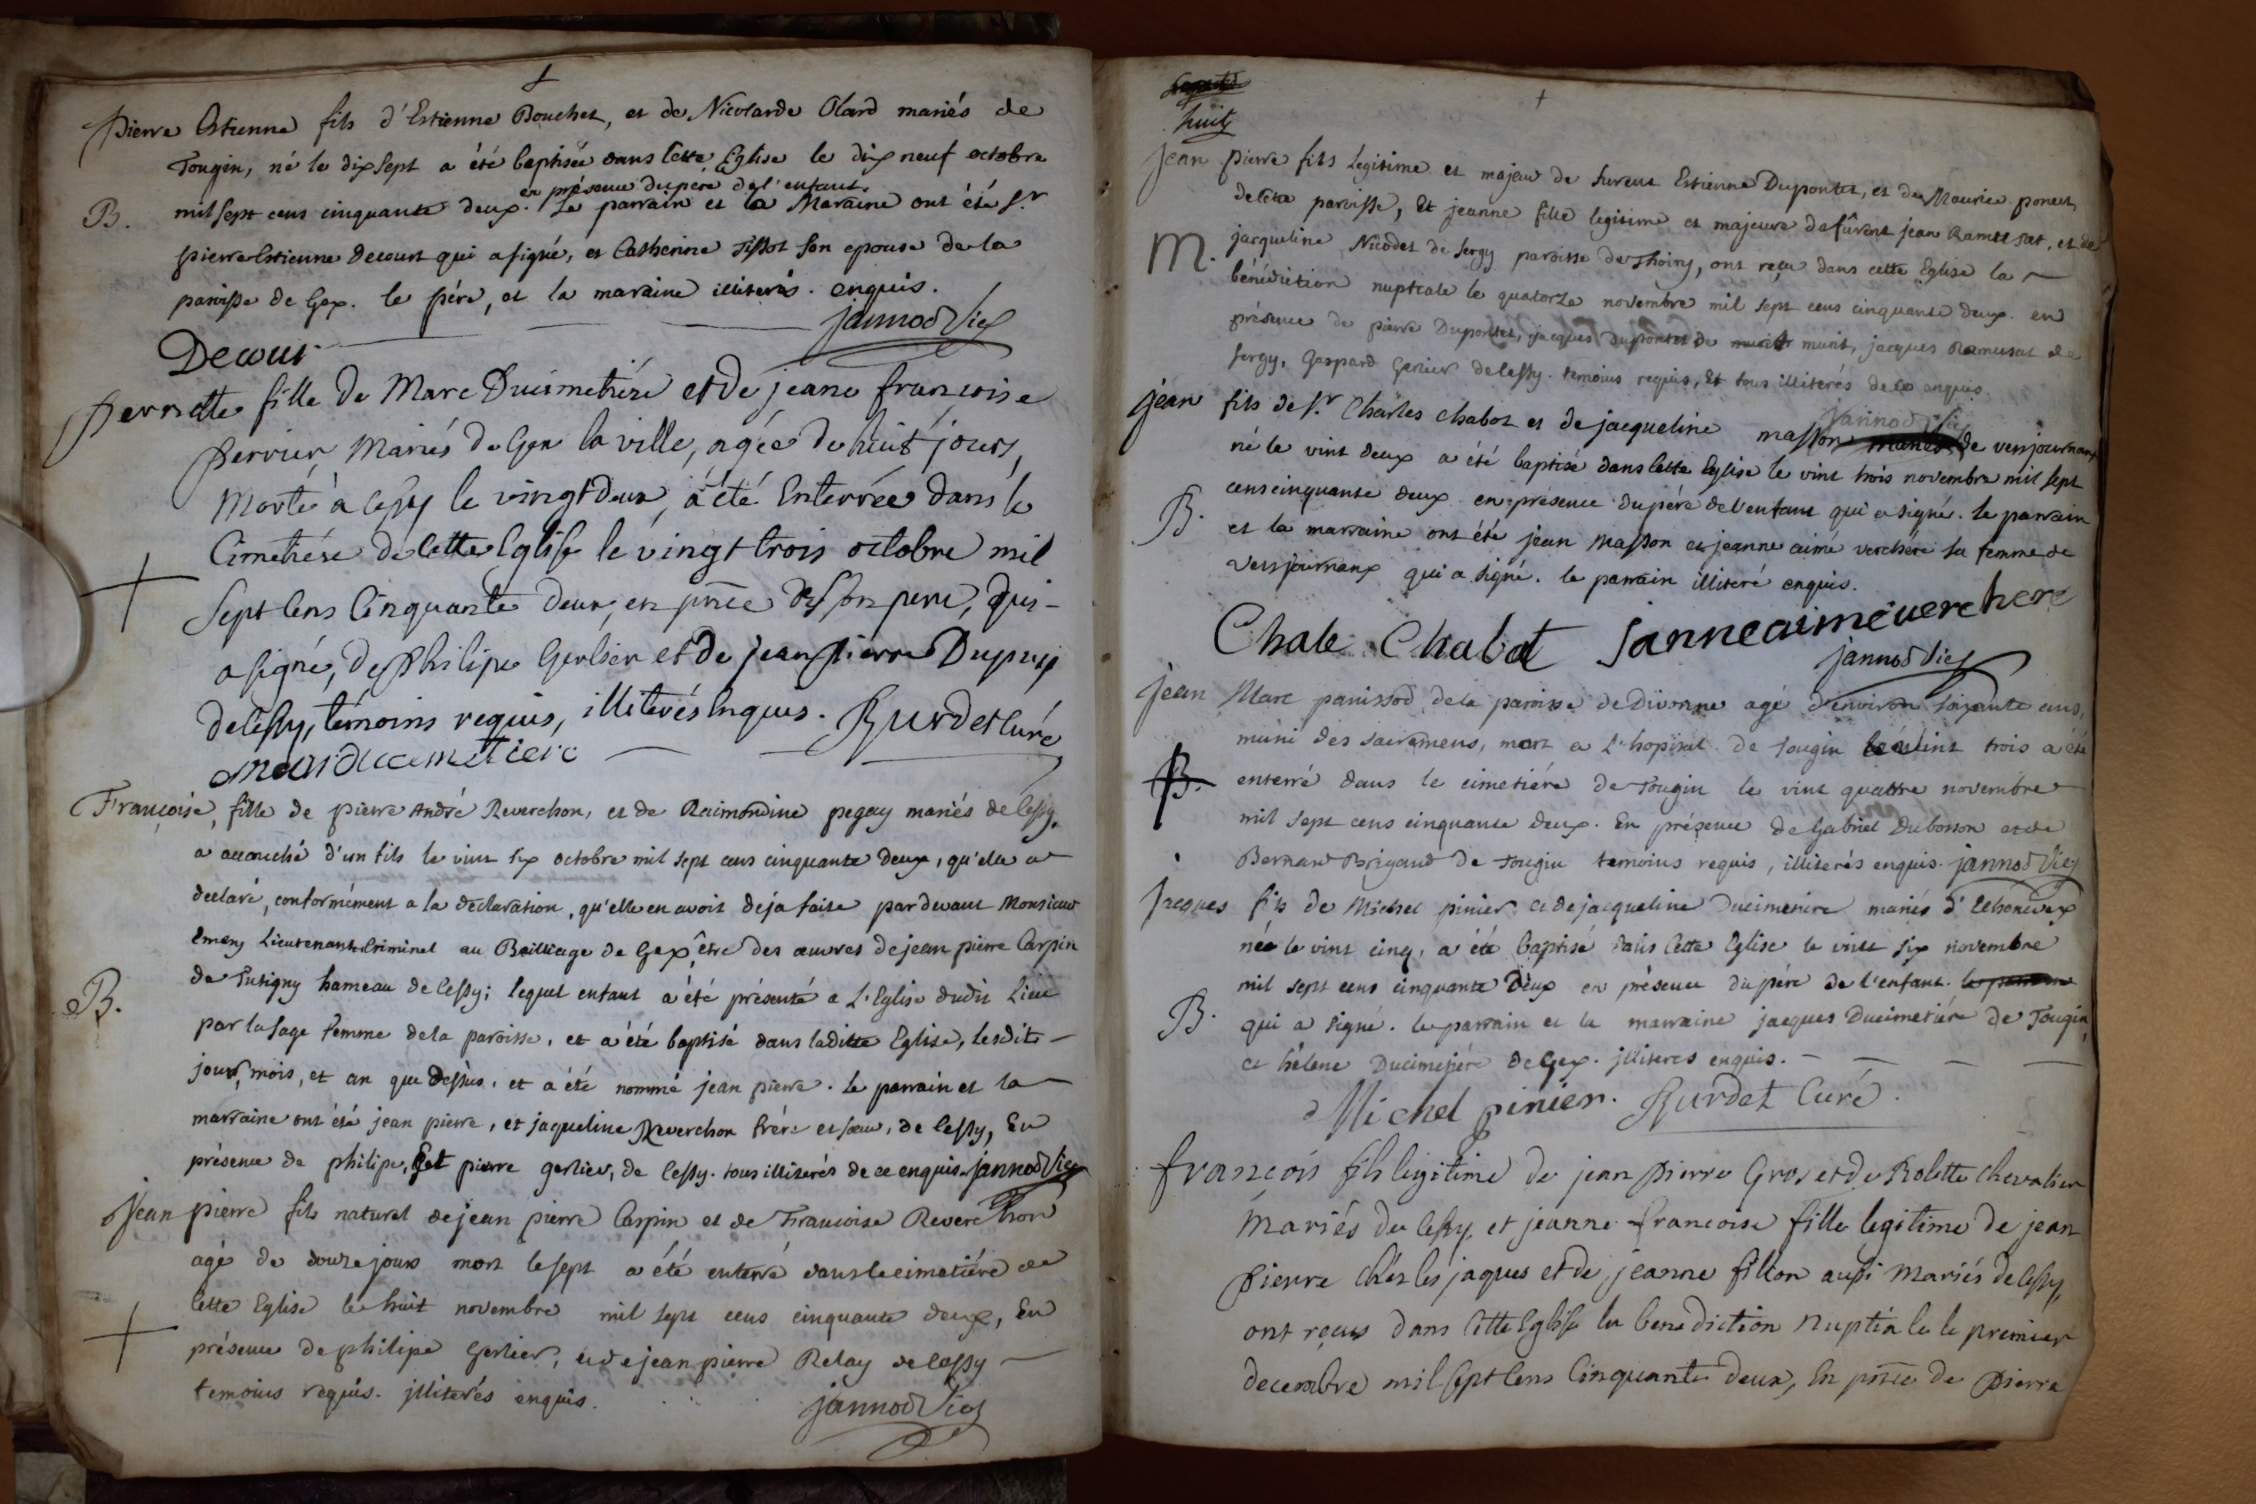 Pierre Estienne fils d'Estienne Bouchet, et de Nicolarde Olard mariés de
Tougin, né le dix sept a été baptisée dans cette Eglise le dix neuf octobre
en présence du père de l'enfant.
B. mil sept cens cinquante deux. Le parrain et la Maraine ont été Sr
pierre Estienne decourt qui a signé, et Catherine tissot son epouse de la
paroisse de Gex. le père, et la maraine illiterés. enquis.
jannod Vic
Decour
Pernette fille de Marc Ducimetiére et de jeane francoise
Perrier, Mariés de Gex la ville, agée de huit jours,
Morte à Cessy le vingt deux, a été Enterrée dans le
Cimetiére de cette Eglise le vingt trois octobre mil
Sept Cens Cinquante deux, en pnce de son pere, qui
a signé, de Philipe Gerlier et de jean pierre Dupuy
de Cessy, témoins requis, illiterés Enquis. Burdet Curé
marc ducimetiere
Françoise, fille de pierre André Reverchon, et de Raimondine pegay mariés de Cessy,
a accouché d'un fils le vint six octobre mil sept cens cinquante deux, qu'elle a
declaré, conformément a la déclaration, qu'elle en avoit déja faite pardevant Monsieur
Emery Lieutenant Criminel au Bailliage de Gex, être des œuvres de jean pierre Carpin
B. de Tutigny hameau de Cessy; lequel enfant a été présenté a L'Eglise dudit Lieu
par la sage femme de la paroisse, et a été baptisé dans laditte Eglise, lesdits
jour, mois, et an que dessus. et a été nommé jean pierre. le parrain et la
marraine ont été jean pierre, et jaqueline Reverchon frére et sœur, de Cessy, En
présence de philipe, et pierre gerlier, de Cessy. tous illiterés de ce enquis. jannod Vic
jean pierre fils naturel de jean pierre Carpin et de Francoise Reverchon
agé de douze jours mort le sept a été enterré dans le cimetiére de
cette Eglise le huit novembre mil sept cens cinquante deux, En
présence de philipe Gerlier, et de jean pierre Relay de Cessy
temoins requis. jlliterés enquis.
jannod Vic
huit
jean pierre fils legitime et majeur de furent Estienne Dupontet, et de Maurice poncet
de cette paroisse, Et jeanne fille legitime et majeure de fûrent jean Ramusat, et de
M. jacqueline Nicodet de Sergy paroisse de Thoiry, ont reçu dans cette Eglise la
bénédiction nuptiale le quatorze novembre mil sept cens cinquante deux. en
présence de pierre Dupontet, jacques dupontet de murit, jacques Ramusat de
Sergy, Gaspard Gerlier de Cessy. temoins requis, Et tous illiterés de ce enquis.
jannod Vic
jean fils de Sr Charles chabot et de jacqueline masson de versjournaux
né le vint deux a été baptisé dans cette Eglise le vint trois novembre mil sept
cens cinquante deux en présence du pére de l'enfant qui a signé. le parrain
B. et la marraine ont été jean Masson et jeanne aimé verchére sa femme de
versjournaux qui a signé. le parrain illiteré enquis.
Chale Chabot Janne aimé verchere
jannod Vic
jean Marc panissod de la paroisse de Divonne agé d'environ soixante ans,
muni des sacremens, mort a L'hopital de Tougin le vint trois a été
B. enterré dans le cimetiére de Tougin le vint quattre novembre
mil sept cens cinquante deux. En présence de Gabriel Dubosson et de
Bernard Brigand de Tougin temoins requis, illiterés enquis. jannod Vic
jacques fils de Michel pinier et de jacqueline Ducimetire mariés d'Echénévex
née le vint cinq, a été baptisé dans cette Eglise le vint six novembre
mil sept cens cinquante deux en présence du pére de l'enfant. le parrain
B. qui a signé. le parrain et la marraine jacques Ducimetiére de Tougin,
et hélene Ducimetiére de Gex. jlliteres enquis.
Michel pinier. Burdet Curé.
françois fils legitime de jean Pierre Gros et de Rolette Chevalier
Mariés de Cessy, et jeanne francoise fille legitime de jean
Pierre chés les jaques et de jeanne fillion aussi Mariés de Cessy,
ont reçus dans Cette Eglise la benediction Nuptiale le premier
decembre mil sept Cens Cinquante deux, En pnce de Pierre